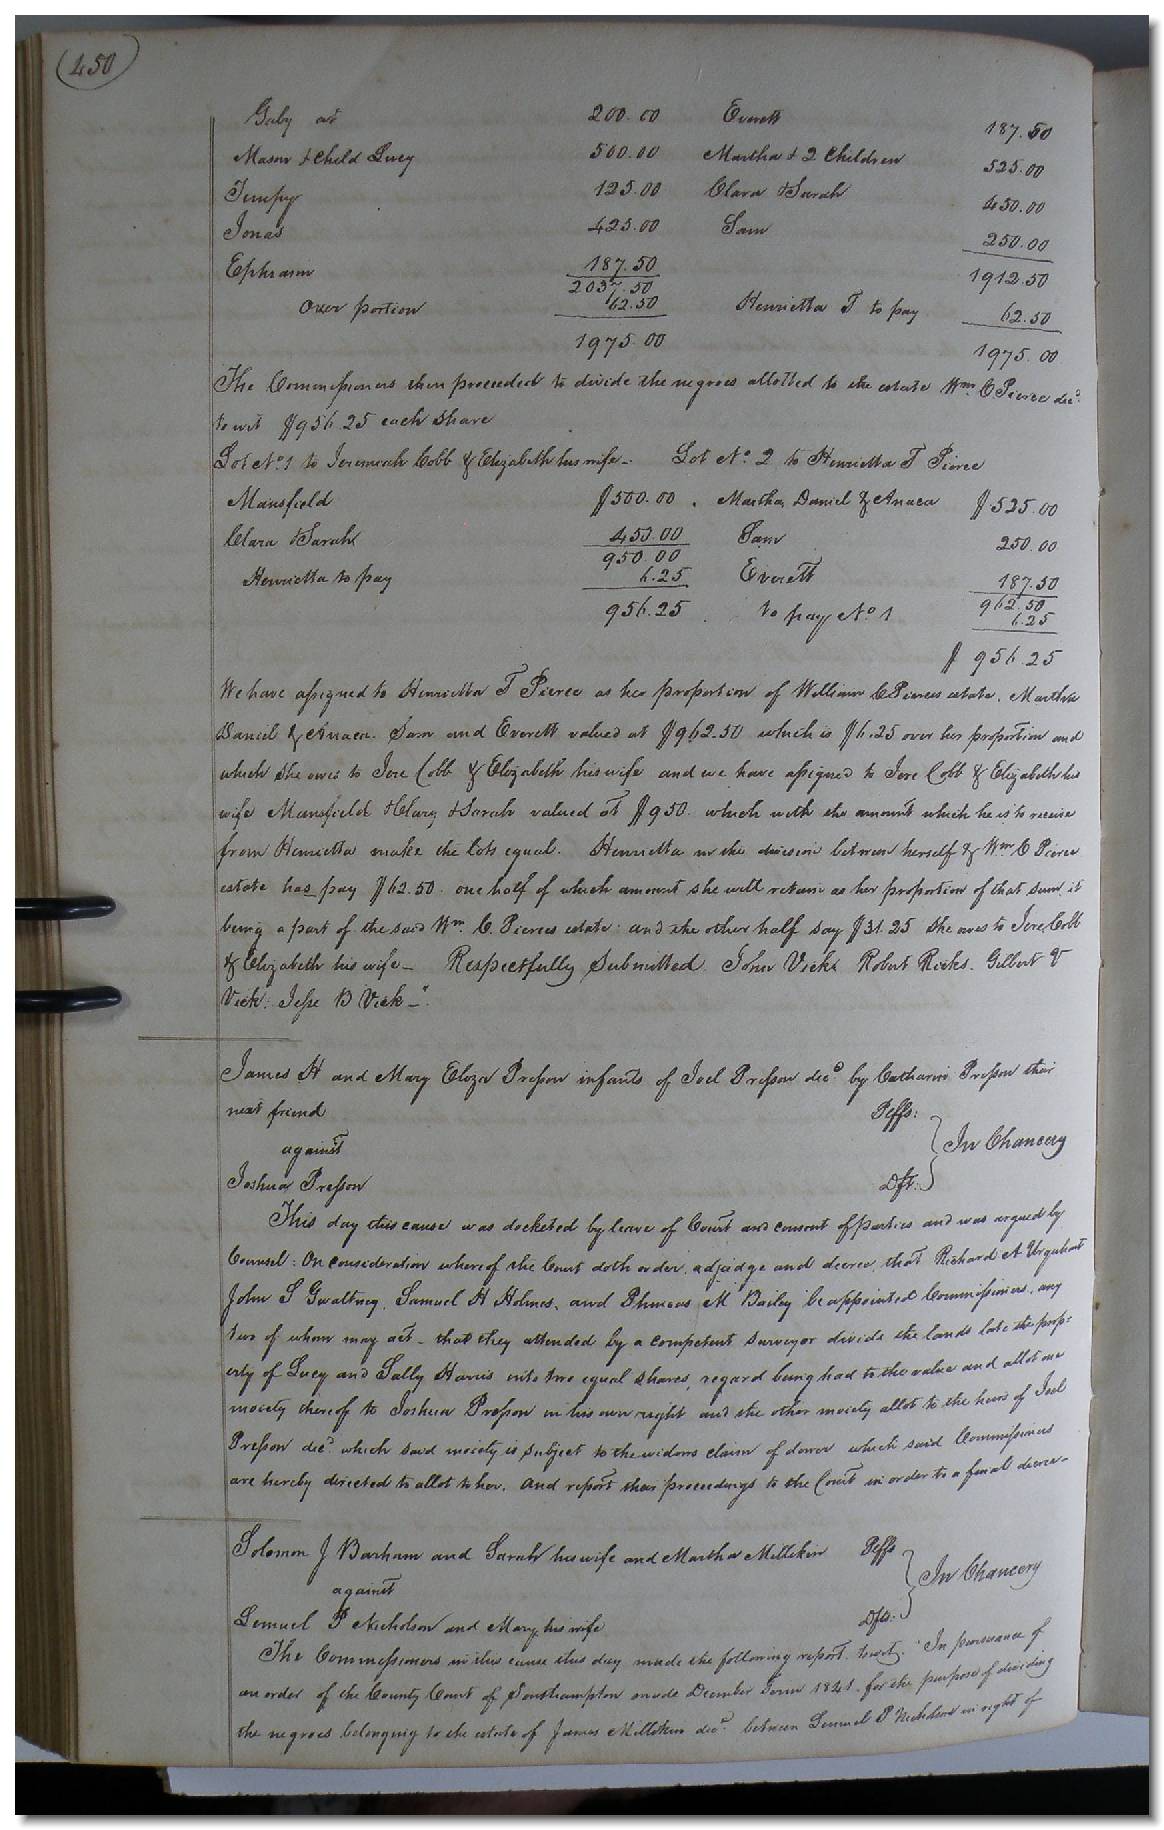 450
Gaby at 200.00 Everett 187.50
Mason & Child Lucy 500.00 Martha & 2 Children 525.00
Tempy 125.00 Clara & Sarah 450.00
Jonas 425.00 Sam 250.00
Ephraim 187.50 1912.50
2037.50
Over portion 62.50 Henrietta T to pay 62.50
1975.00 1975.00
The Commissioners then proceeded to divide the negroes allotted to the estate Wm. C Pierce decd.
to wit $956.25 each share
Lot No. 1 to Jeremiah Cobb & Elizabeth his wife - Lot No. 2 to Henrietta T Pierce
Mansfield $500.00 . Martha, Daniel & Anaca $525.00
Clara & Sarah 450.00 Sam 250.00
950.00
Henrietta to pay 6.25 Everett 187.50
956.25 to pay No 1 962.50
6.25
$ 956.25
We have assigned to Henrietta T Pierce as her proportion of William C Pierces estate, Martha
Daniel & Anaca. Sam and Everett valued at $962.50 which is $6.25 over her proportion and
which she owes to Jere Cobb & Elizabeth his wife and we have assigned to Jere Cobb & Elizabeth his
wife Mansfield & Clary & Sarah valued at $950. which with the amount which he is to receive
from Henrietta make the lots equal. Henrietta in the division between herself & Wm C Pierce
estate has pay $62.50. one half of which amount she will retain as her proportion of that sum, it
being a part of the said Wm. C. Pierces estate: and the other half say $31.25 she owes to Jere Cobb
& Elizabeth his wife - Respectfully Submitted. John Vick Robert Ricks. Gilbert V
Vick. Jesse B Vick -".
James H and Mary Eliza Presson infants of Joel Presson decd by Catharine Presson their
next friend Plffs:
against In Chancery
Joshua Presson Dft:
This day this cause was docketed by leave of Court and consent of parties and was argued by
Counsel: On consideration whereof the Court doth order, adjudge and decree, that Richard A Urquhart
John S Gwaltney, Samuel H Holmes, and Phineas M Bailey be appointed Commissioners, any
two of whom may act - that they attended by a competent surveyor divide the lands late the prop-
erty of Lucy and Sally Harris into two equal shares, regard being had to the value and allot one
moiety thereof to Joshua Presson in his own right and the other moiety allot to the heirs of Joel
Presson decd. which said moiety is subject to the widows claim of dower which said Commissioners
are hereby directed to allot to her. And report their proceedings to the Court in order to a final decree -
Solomon J Barham and Sarah his wife and Martha Millikin Plffs
against In Chancery
Lemuel P Nicholson and Mary his wife Dfts:
The Commissioners in this cause this day made the following report. towit. "In pursuance of
an order of the County Court of Southampton made December Term 1841. for the purpose of dividing
the negroes belonging to the estate of James Millikin decd. between Lemuel P Nicholson in right of